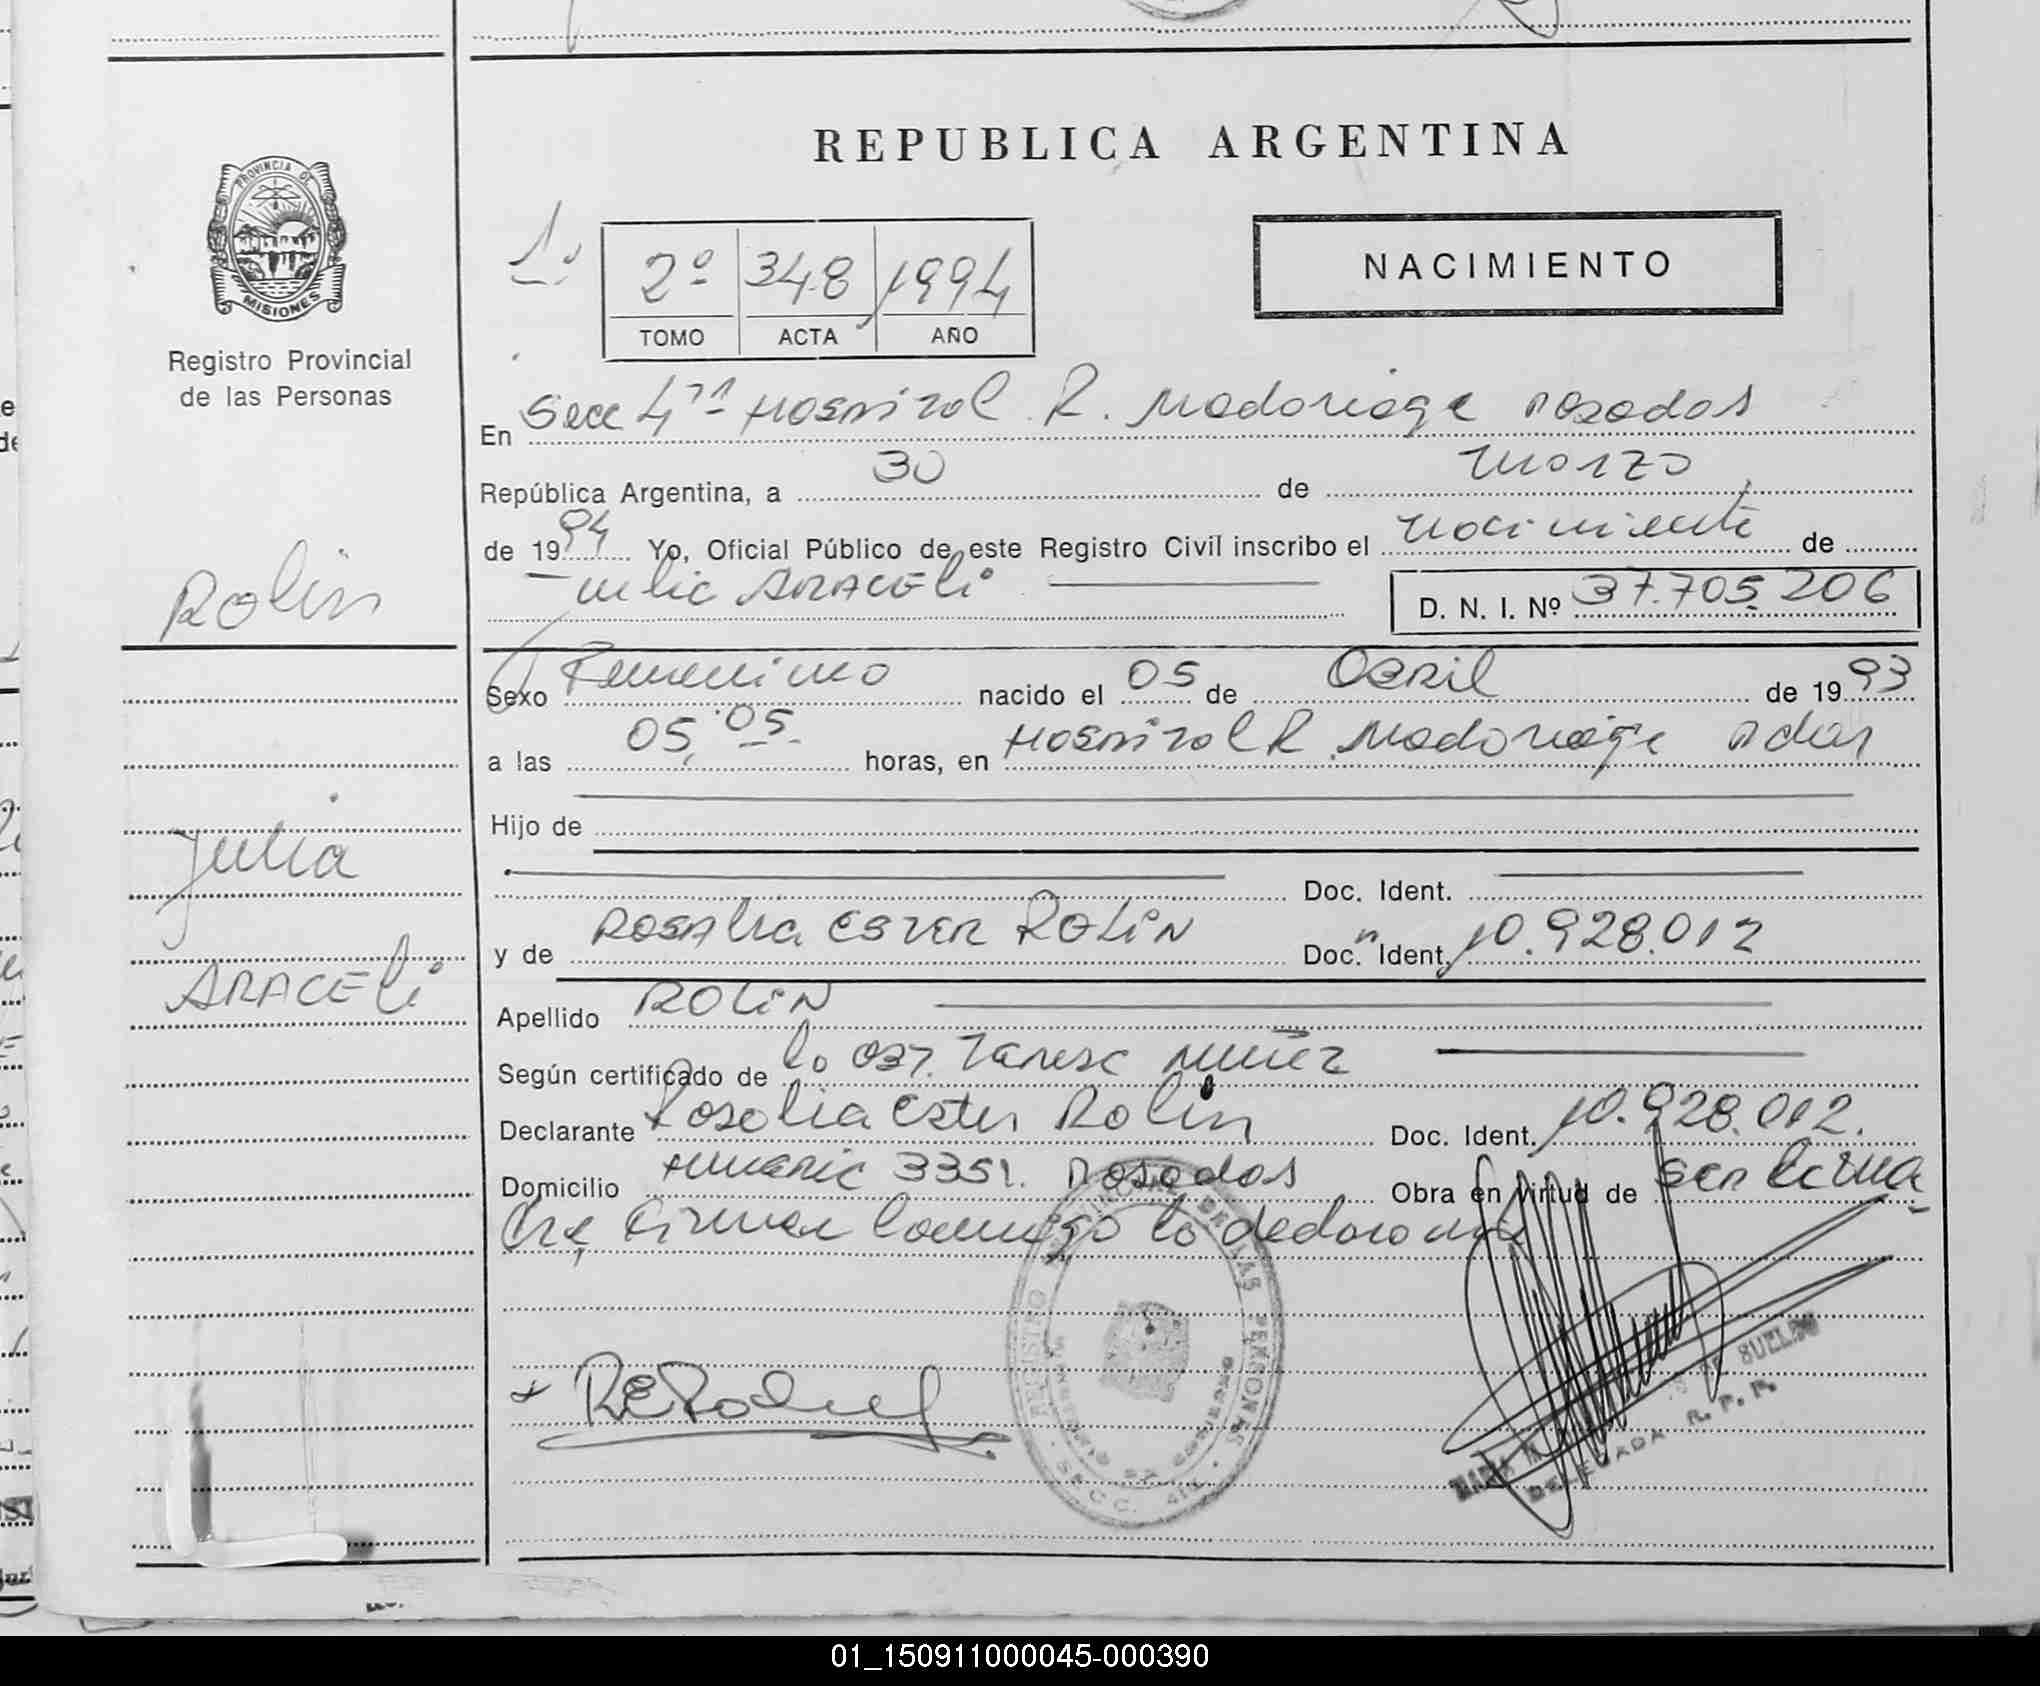 REPUBLICA ARGENTINA
PROVINCIA DE
MISIONES
Registro Provincial
de las Personas
1º
2º 348 1994
TOMO ACTA AÑO
NACIMIENTO
En Secc 4ta Hospital R. Madariaga Posadas
República Argentina, a 30 de marzo
de 1994 Yo, Oficial Público de este Registro Civil inscribo el nacimiento de
Julia ARACELi D. N. I. Nº 37.705.206
Rolin
Julia
ARACELi
Sexo Femenino nacido el 05 de Abril de 1993
a las 05,05. horas, en Hospital R. Madariaga Pdas
Hijo de
Doc. Ident.
y de ROSAlia ESTER ROLiN Doc. Ident. 10.928.012
Apellido ROLiN
Según certificado de la Obst. Nuñez
Declarante Rosalia Ester Rolin Doc. Ident. 10.928.012.
Domicilio 3351. Posadas Obra en virtud de ser la ma
dre, firma conmigo la declarante
REGISTRO PROVINCIAL DE LAS PERSONAS
SECC. 4ta.
DELEGADA R. P. P.
01_150911000045-000390